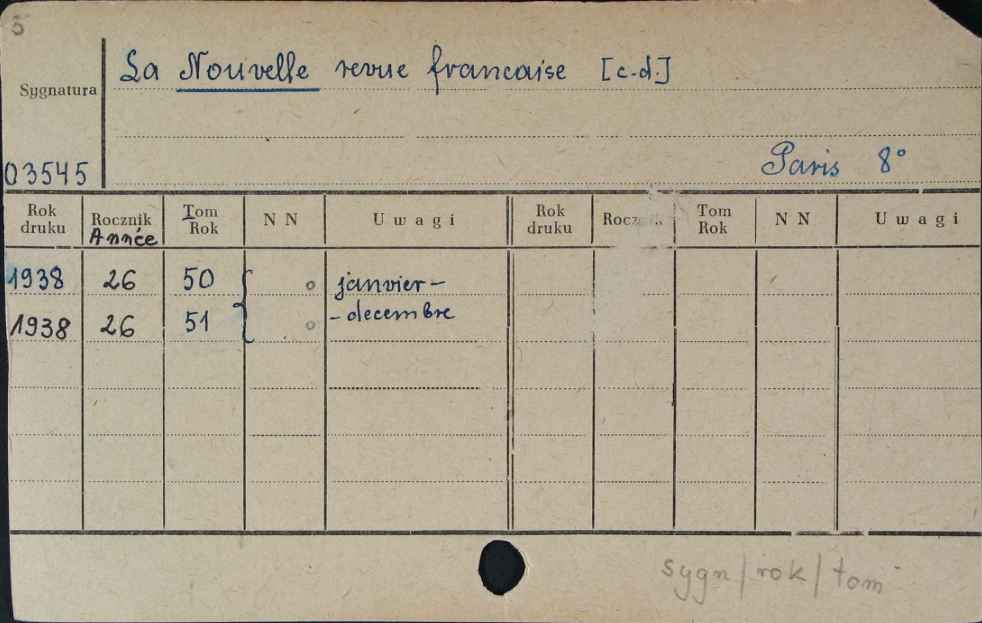 5
La Nouvelle revue francaise [c.d.]
Sygnatura
03545
Paris 8°
Rok druku Rocznik Année Tom Rok N N Uwagi Rok druku Rocznik Tom Rok N N Uwagi
1938 26 50 janvier –
1938 26 51 – decembre
sygn/rok/tom